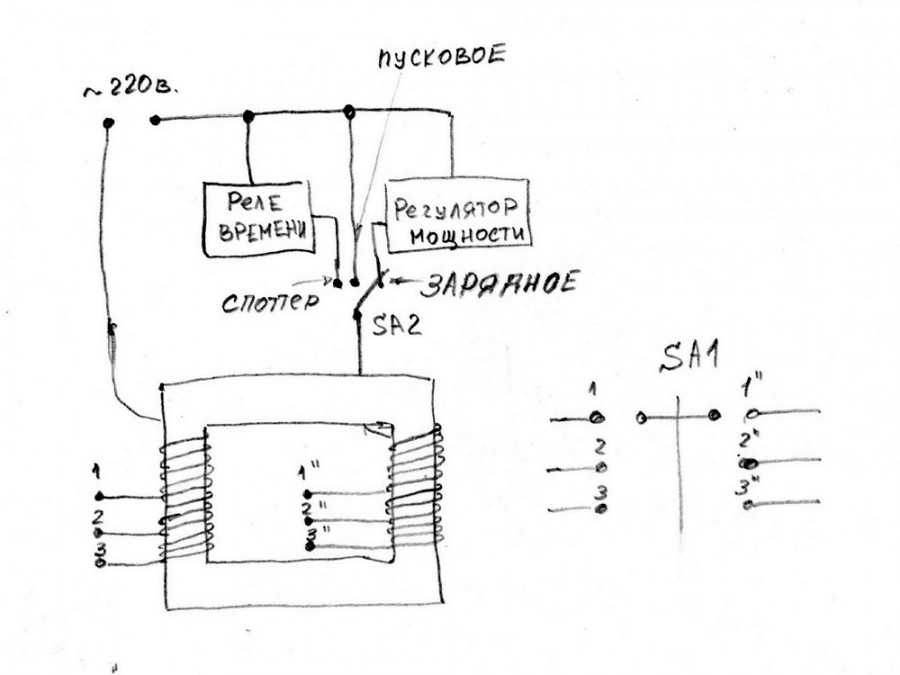 ПУСКОВОЕ
~220в.
РЕЛЕ
ВРЕМЕНИ
РЕГУЛЯТОР
МОЩНОСТИ
СПОТТЕР
ЗАРЯДНОЕ
SA2
SA1
1
2
3
1"
2"
3"
1
2
3
1"
2"
3"